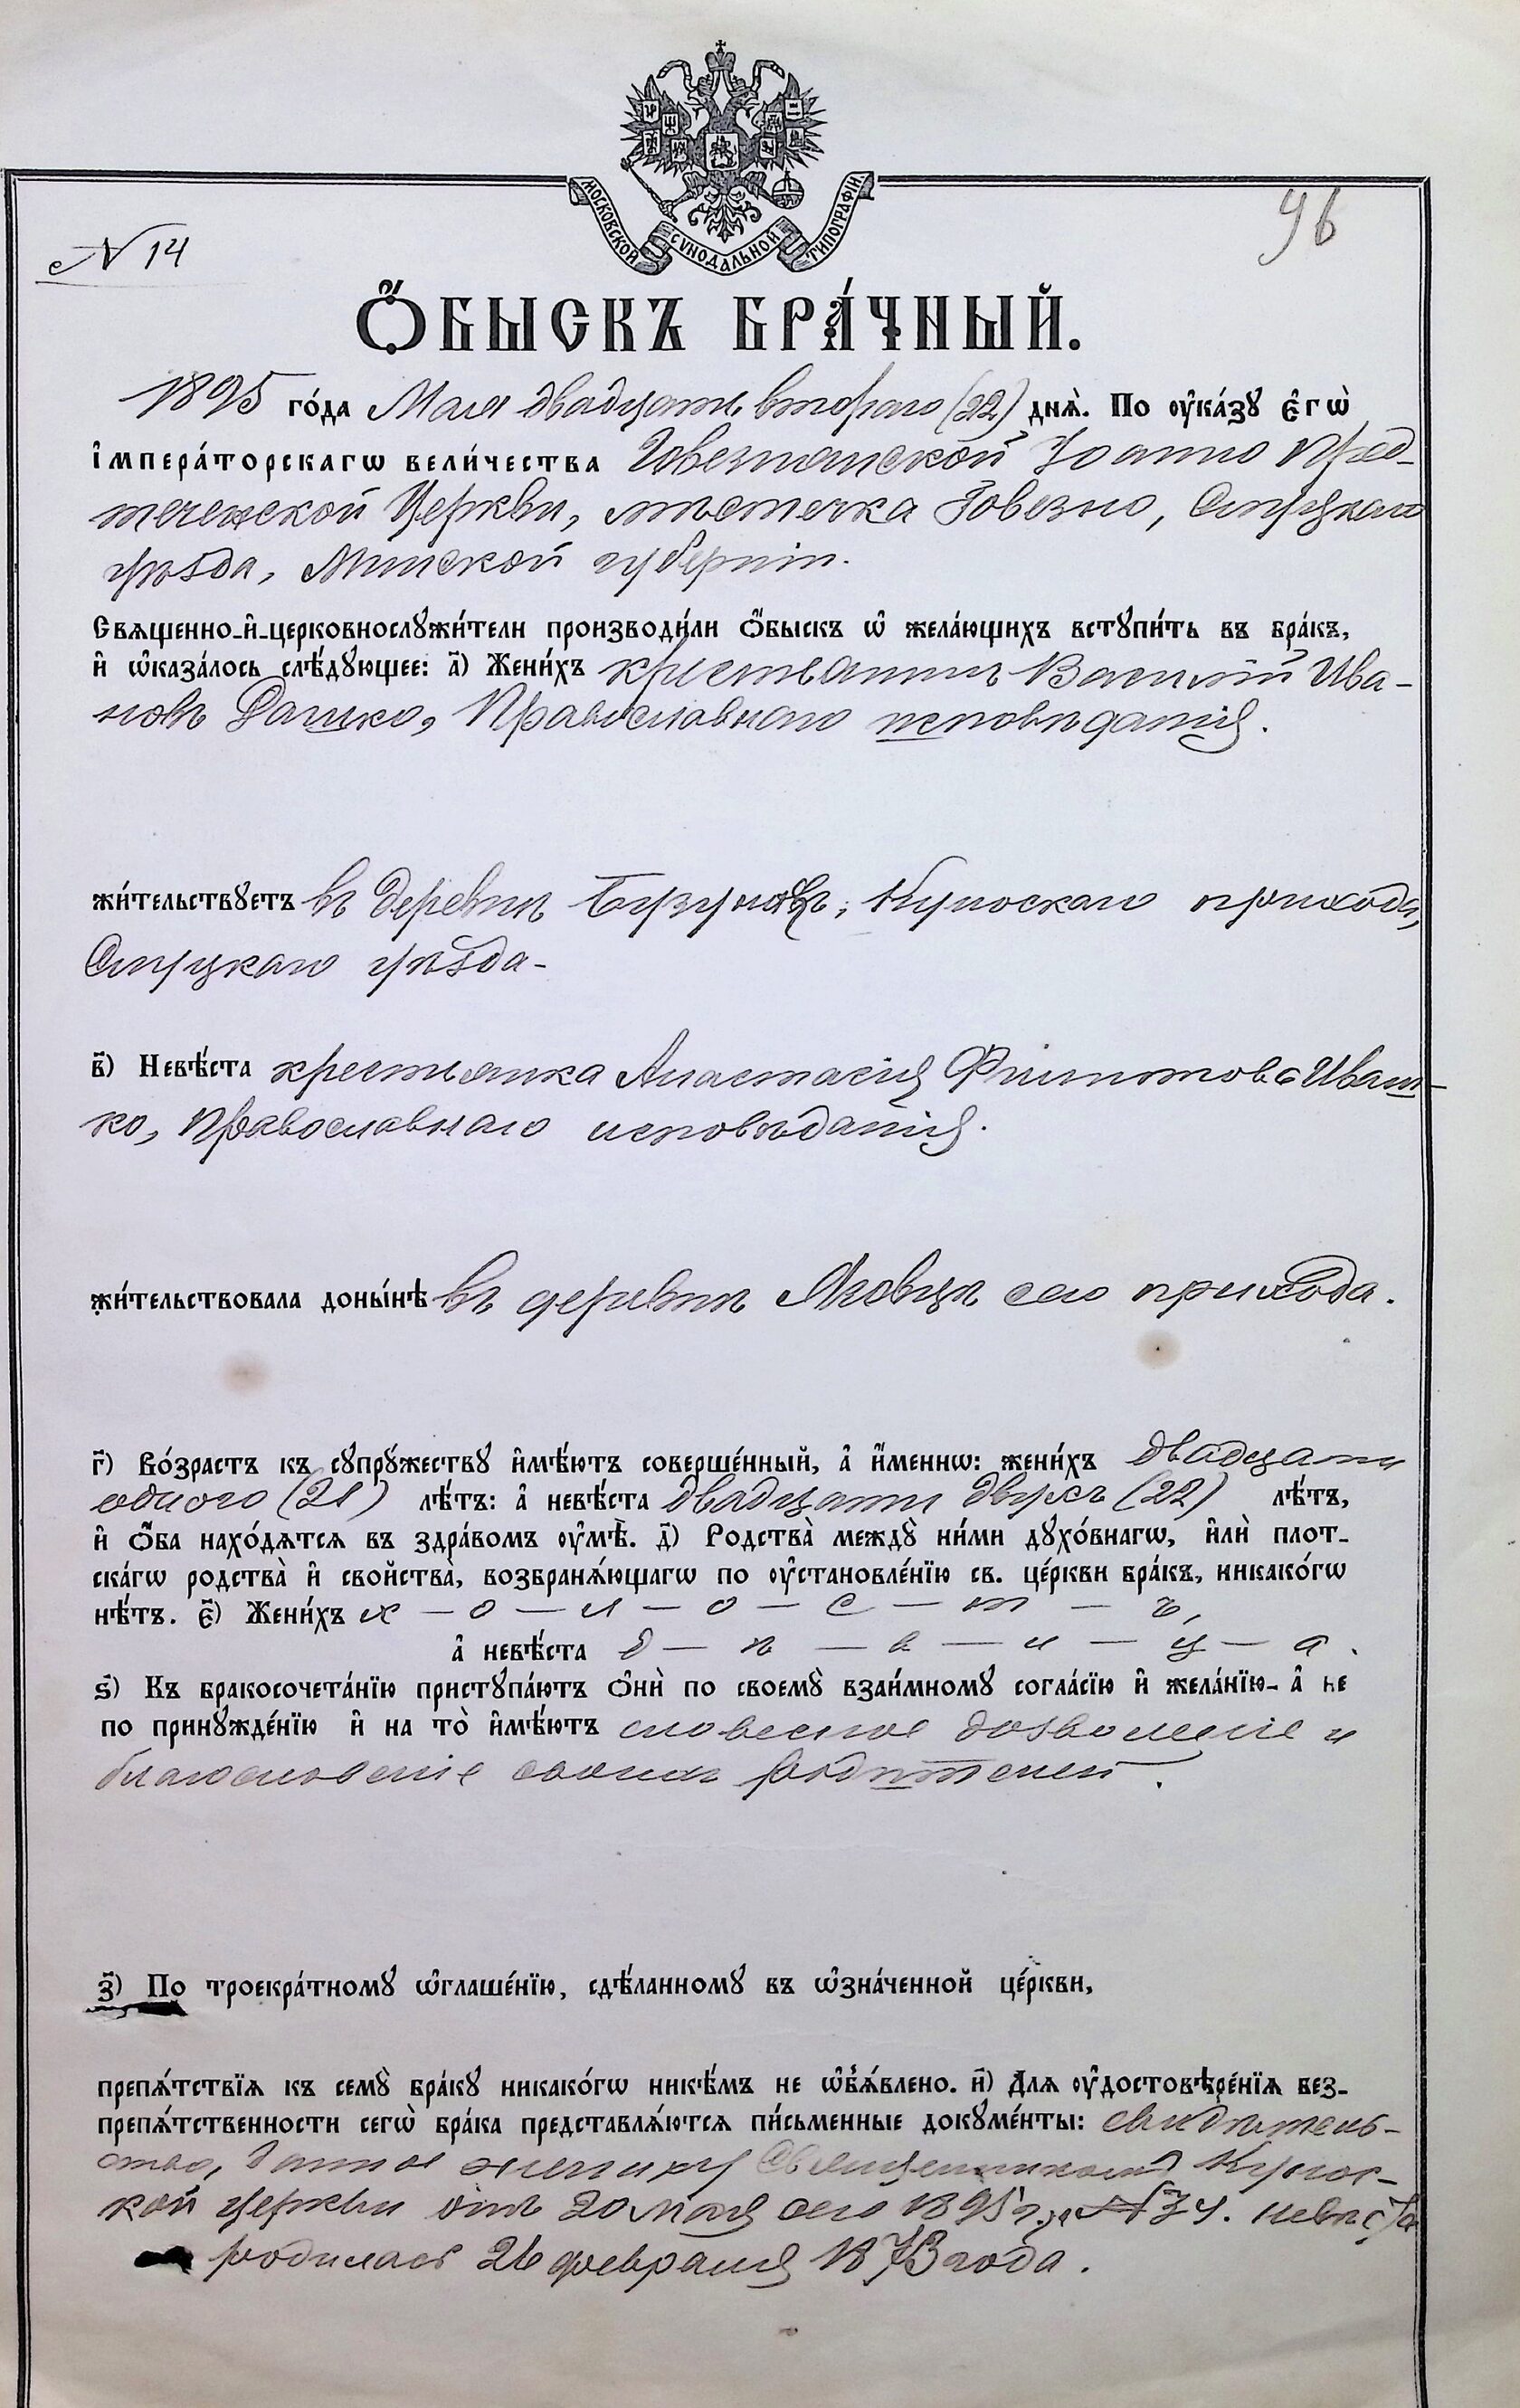 МОСКОВСКОЙ СѴНОДАЛЬНОЙ ТИПОГРАФІИ.
N 14
96
Ѻ҆БЫСКЪ БРА́ЧНЫЙ.
1895 го́да Мая двадцать втораго (22) днѧ̀. По ᲂу҆ка́зꙋ є҆гѡ̀
і҆мпера́торскагѡ вели́чества Говезнянской Іоанно Пред-
теченской Церкви, мѣстечка Говезно, Слуцкаго
уѣзда, Минской губерніи.
Свѧщенно-и҆-церковнослꙋжи́тели производи́ли ѻ҆́быскъ ѡ҆ жела́ющихъ встꙋпи́ть въ бра́къ,
и҆ ѡ҆каза́лось слѣ́дꙋющее: а҃) Жени́хъ крестьянинъ Василій Ива-
новъ Дашко, Православнаго исповѣданія.
жи́тельствꙋетъ въ деревнѣ Бузунахъ, Куноскаго прихода,
Слуцкаго уѣзда-
в҃) Невѣ́ста крестьянка Анастасія Филиппова Иваш-
ко, Православнаго исповѣданія.
жи́тельствовала доны́нѣ въ деревнѣ Яговцѣ сего прихода.
г҃) Во́зрастъ къ сꙋпрꙋ́жествꙋ и҆мѣ́ютъ соверше́нный, а҆ и҆́меннѡ: жени́хъ двадцати
одного (21) лѣ́тъ: а҆ невѣ́ста двадцати двухъ (22) лѣ́тъ,
и҆ ѻ҆́ба нахо́дѧтсѧ въ здра́вомъ ᲂу҆мѣ̀. д҃) Родства̀ междꙋ̀ ни́ми дꙋхо́внагѡ, и҆лѝ плот-
ска́гѡ родства̀ и҆ свойства̀, возбранѧ́ющагѡ по ᲂу҆становле́нїю св. це́ркви бра́къ, никако́гѡ
нѣ́тъ. є҃) Жени́хъ х — о — л — о — с — т — ъ,
а҆ невѣ́ста д — ѣ — в — и — ц — а.
ѕ҃) Къ бракосочета́нїю пристꙋпа́ютъ ѻ҆нѝ по своемꙋ̀ взаи́мномꙋ согла́сїю и҆ жела́нїю- а҆ не
по принꙋжде́нїю и҆ на то̀ и҆мѣ́ютъ словесное дозволеніе и
благословеніе своихъ родителей.
з҃) По троекра́тномꙋ ѡ҆глаше́нїю, сдѣ́ланномꙋ въ ѡ҆зна́ченной це́ркви,
препѧ́тствїѧ къ семꙋ̀ бра́кꙋ никако́гѡ никѣ́мъ не ѡ҆б̾ѧ́влено. и҃) Длѧ ᲂу҆достовѣре́нїѧ без-
препѧ́тственности сегѡ̀ бра́ка представлѧ́ютсѧ пи́сьменные докꙋме́нты: свидѣтель-
ство, данное жениху Священникомъ Кунос-
кой церкви отъ 20 мая сего 1895 г. за № 34. невѣста
родилась 26 февраля 1873 года.